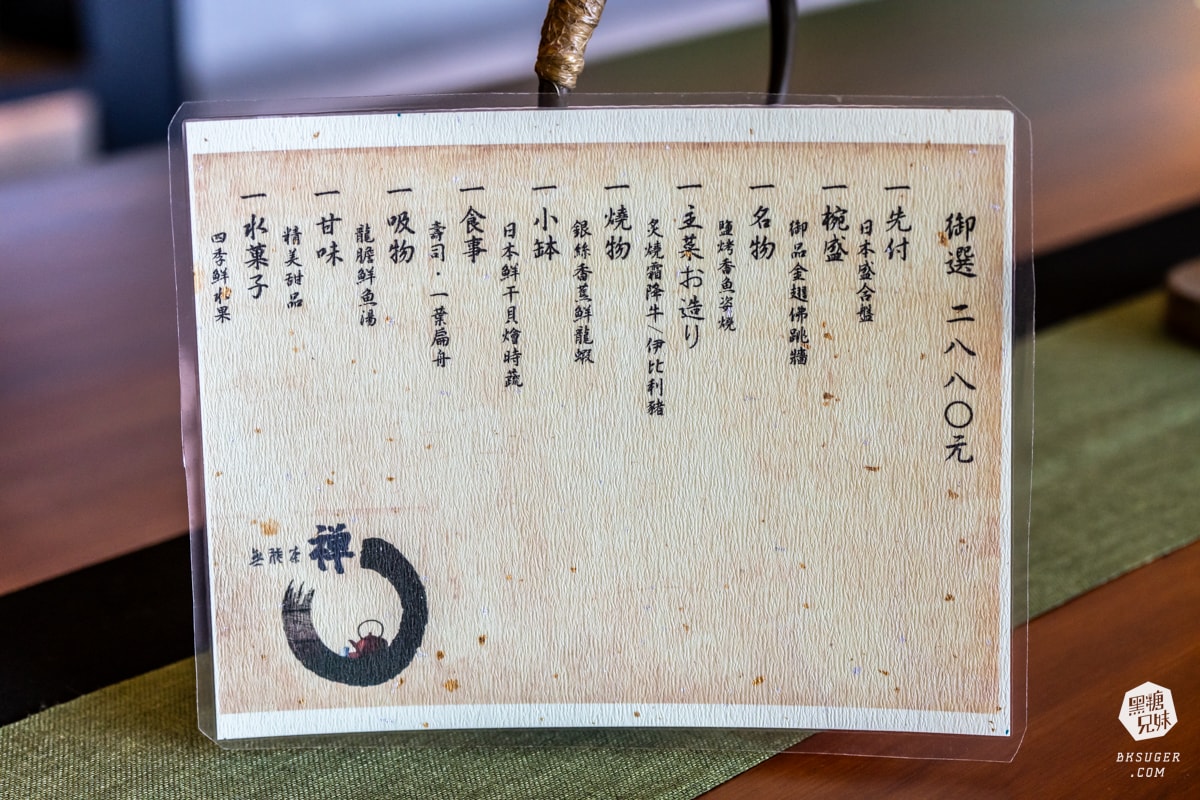 御選 二八八〇元
一先付
日本盛合盤
一椀盛
御品金翅佛跳牆
一名物
鹽烤香魚姿燒
一主菜お造り
炙燒霜降牛/伊比利豬
一燒物
銀絲香蔥鮮龍蝦
一小缽
日本鮮干貝燴時蔬
一食事
壽司·一葉扁舟
一吸物
龍膽鮮魚湯
一甘味
精美甜品
一水菓子
四季鮮水果
禪
無龍本
黑糖
兄妹
BKSUGER
.COM